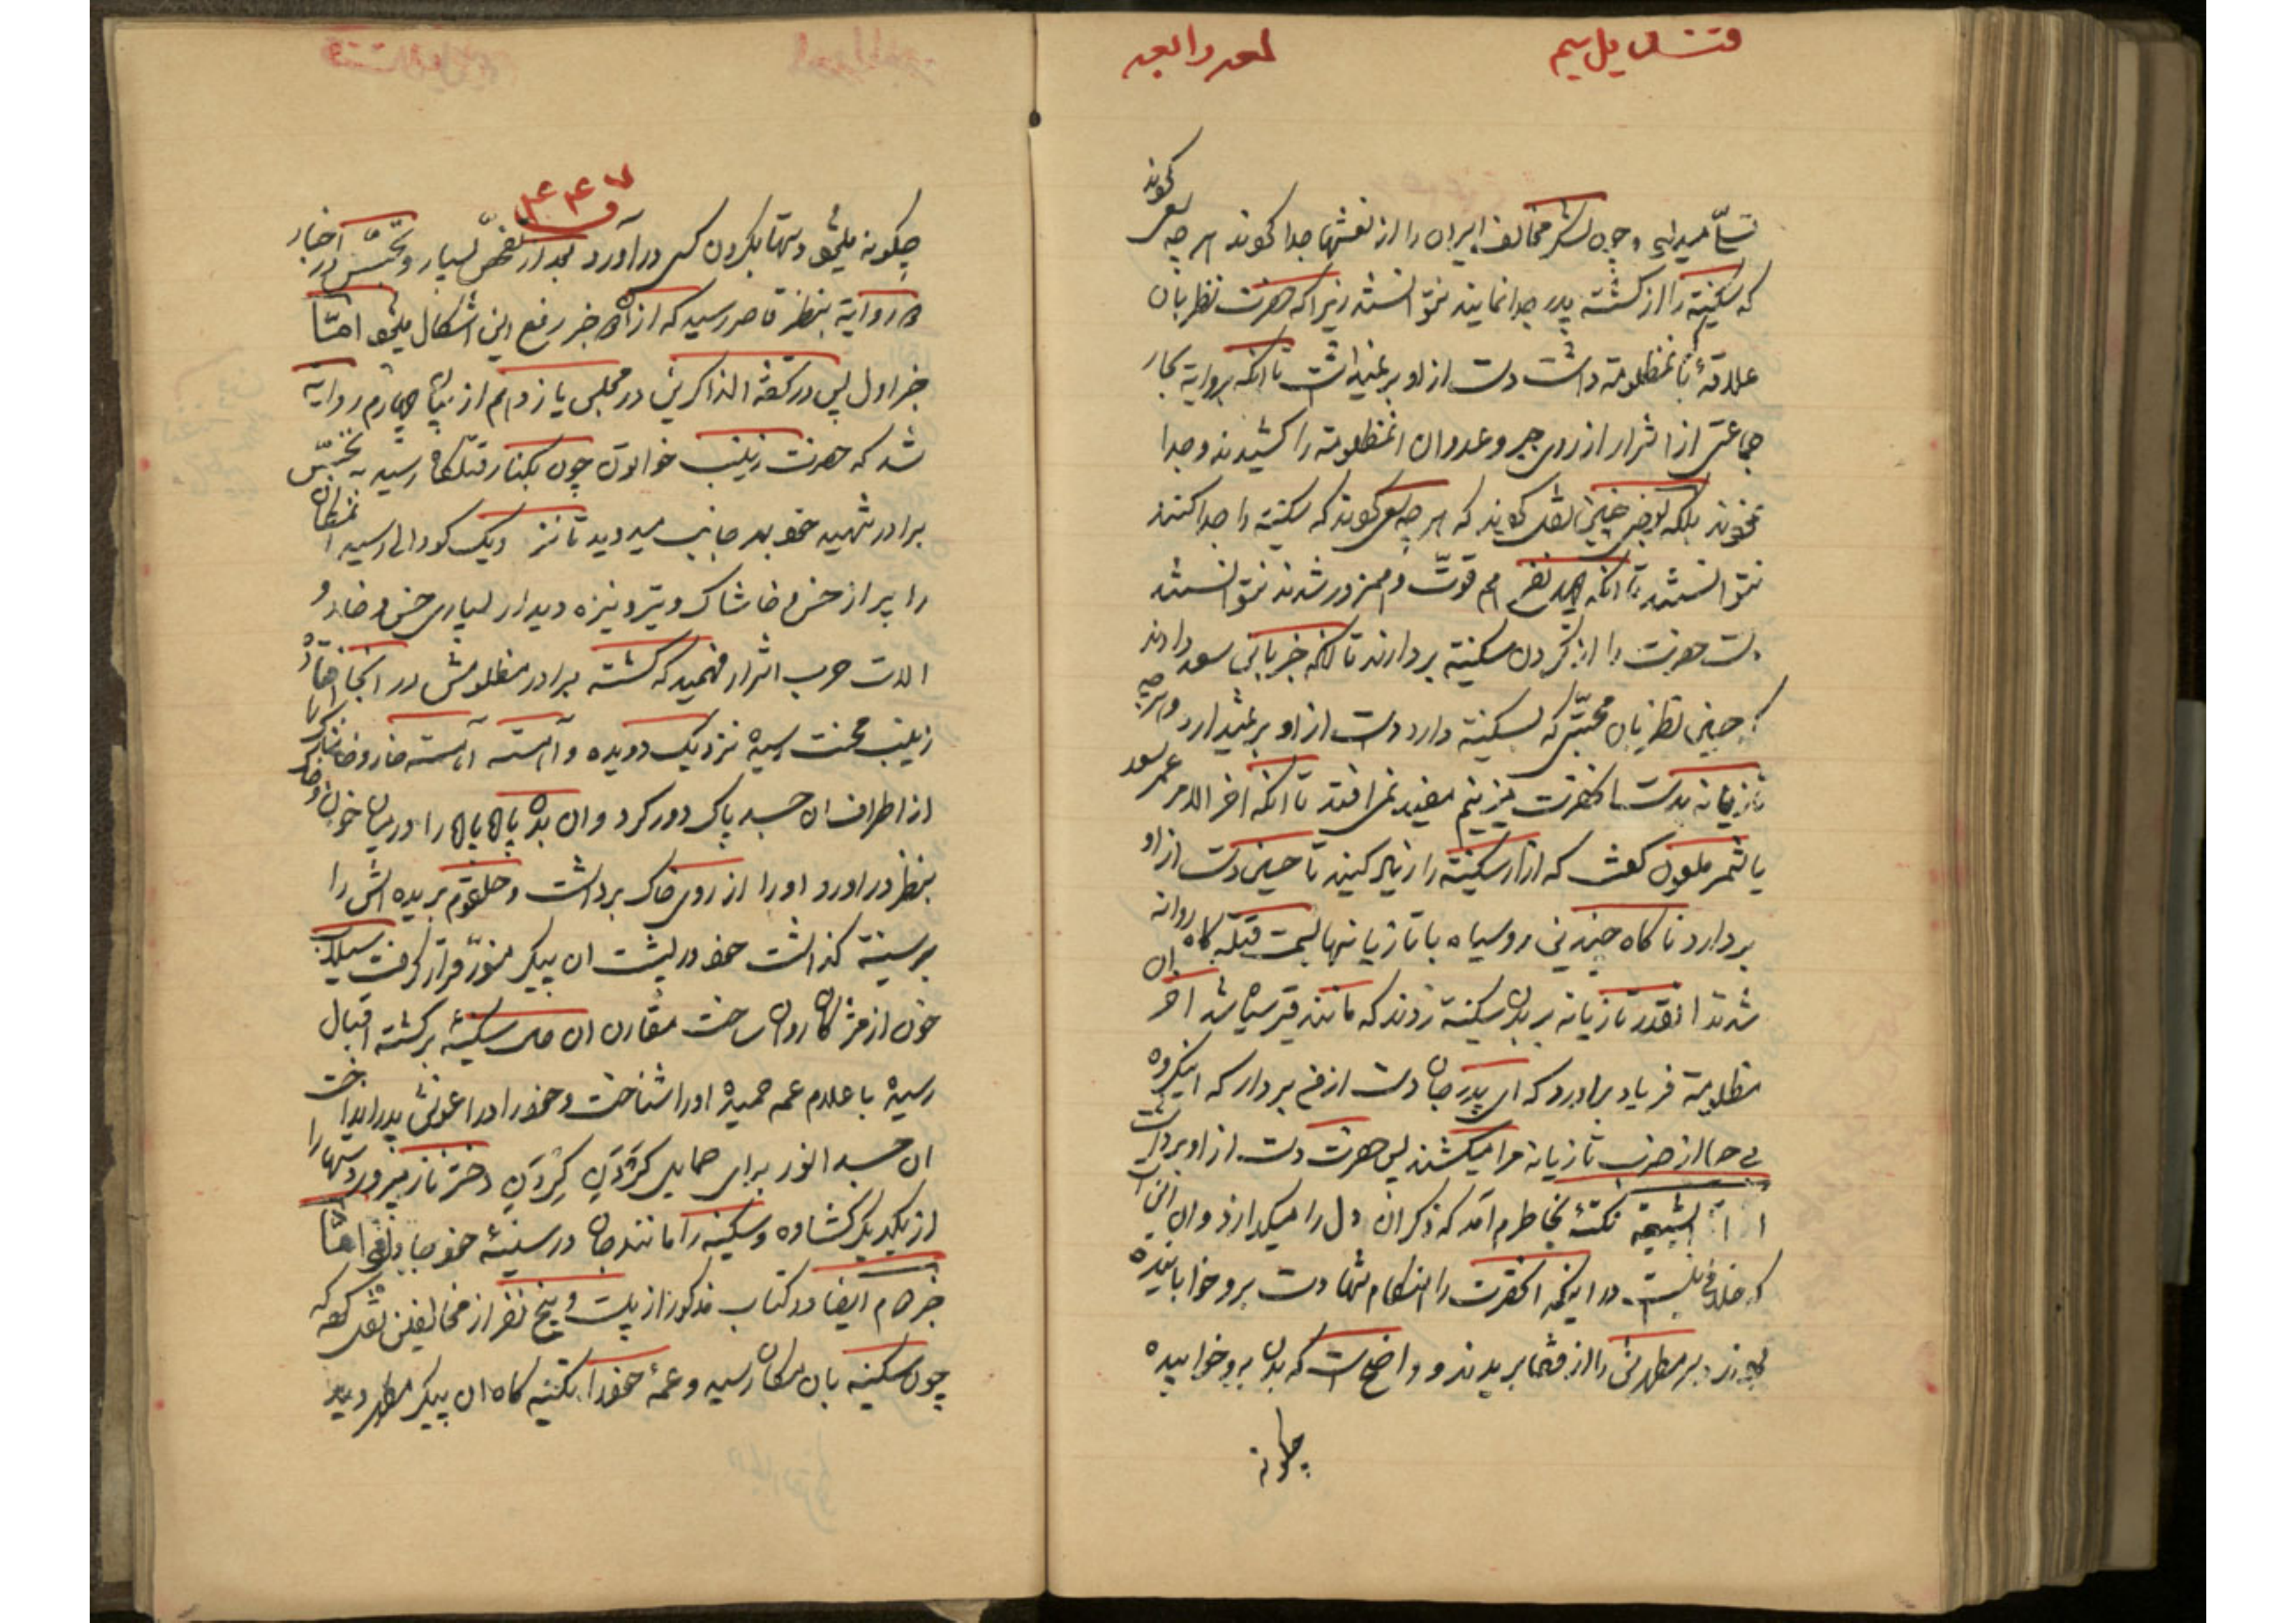 تسلّی میداد و چون لشکر مخالف اسیران را از نعشها جدا کردند هر چه سعی کردند
که سکینه را از کشته پدر جدا نمایند نتوانستند زیرا که حضرت نظر بان
علاقهٔ بانمظلومه داشت دست از او بر نمیداشت تا انکه بروایة بحار
جماعتی از اشرار از روی جبر و عدوان انمظلومه را کشیدند و جدا
نمودند بلکه بعضی چنین نقل کردند که هر چه سعی کردند که سکینه را جدا کنند
نتوانستند تا انکه چند نفر هم قوّت و همزور شدند نتوانستند
دست حضرت را از گردن سکینه بردارند تا انکه خبر بابن سعد دادند
که حسین نظر بان محبّتی که بسکینه دارد دست از او بر نمیدارد و هر چه
تازیانه بدست انحضرت میزنیم مفید نمی افتد تا انکه اخر الامر عمر سعد
یا شمر ملعون گفت که ازار سکینه را زیاد کنید تا حسین دست از او
بردارد ناگاه چندین روسیاه با تازیانها بسمت قتلگاه روانه
شدند انقدر تازیانه بر بدن سکینه زدند که مانند قیر سیاه شد اخر ان
مظلومه فریاد براورد که ای پدر جان دست از من بردار که اینگروه
بی حیا از ضرب تازیانه مرا میکشند پس حضرت دست از او برداشت
الشیعة نکتهٔ بخاطرم امد که ذکر ان دل را میگدازد و ان اینست
که خلافی نیست در اینکه انحضرت را هنگام شهادت برو خوابانیده
بودند و سر مطهرش را از قفا بریدند و واضح است که بدن برو خوابیده
چگونه
۴۴۷
چگونه میشود دستها بگردن کسی دراورد بعد از تفحّص بسیار و تجسّس در اخبار
دو روایة بنظر قاصر رسید که از ان دو خبر رفع این اشکال میشود امّا
خبر اول پس در تحفة الذاکرین در مجلس یازدهم از بیان چهارم روایة
شد که حضرت زینب خواتون چون بکنار قتلگاه رسید به تجسّس
برادر شهید خود بهر جانب میدوید تا نزدیک گودالی رسید انمکان
را پر از خس و خاشاک و تیر و نیزه دید از بسیاری خس و خار و
الات حرب اشرار فهمید که کشته برادر مظلومش در انجا افتاده
زینب محنت رسیده نزدیک دویده و آهسته آهسته خار و خاشاک را
از اطراف ان جسد پاک دور کرد و ان بدن پاره پاره را در میان خون و خاک
بنظر دراورد او را از روی خاک برداشت و حلقوم بریده اش را
بر سینه گذاشت خود در پشت ان پیکر منوّر قرار گرفت سیلاب
خون از مژگان روان ساخت مقارن ان حال سکینهٔ برگشته اقبال
رسیده با علام عمه حمیده او را شناخت و خود را در اغوش پدر انداخت
ان جسد انور برای حمایل کردن گردن دختر ناز پرور دستها را
از یکدیگر گشاده و سکینه را مانند جان در سینهٔ خود جا داد و امّا
خبر دوم ایضا در کتاب مذکور از بیست و پنج نفر از مخالفین نقل کرده که
چون سکینه بان مکان رسید و عمهٔ خود را بکشته گاه ان پیکر مطهر دید